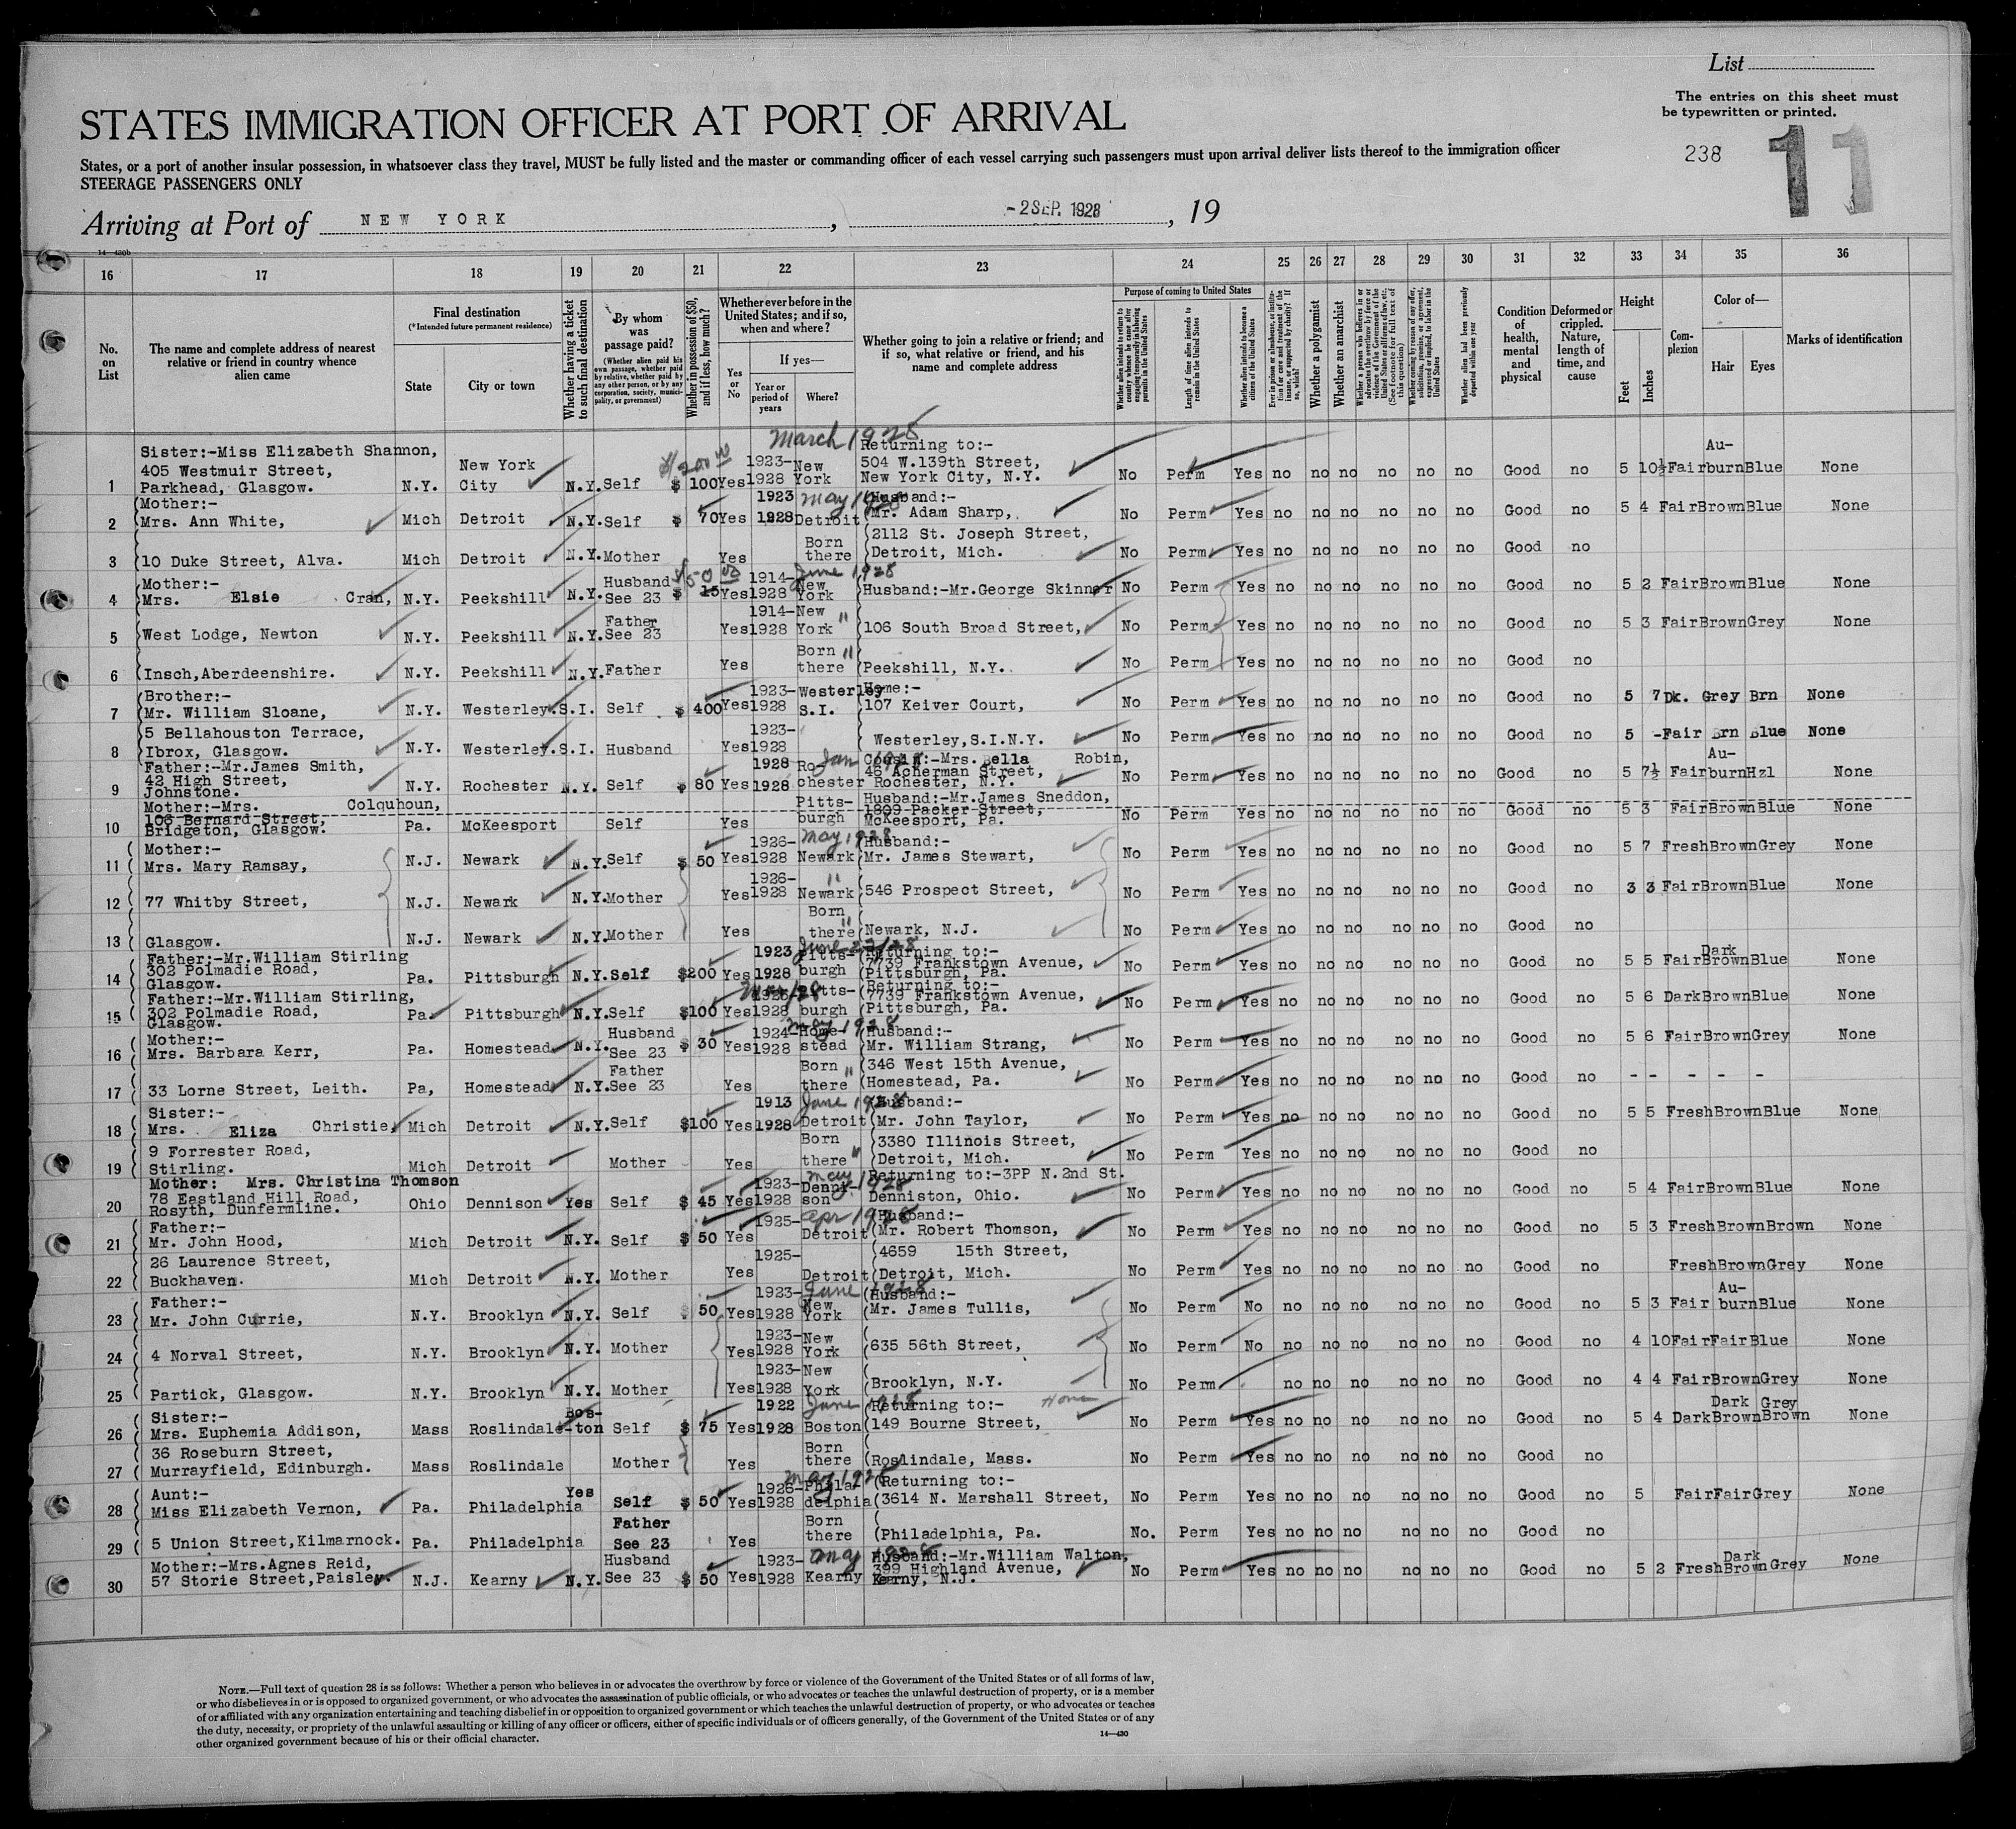 List
The entries on this sheet must
be typewritten or printed.
STATES IMMIGRATION OFFICER AT PORT OF ARRIVAL
238 11
States, or a port of another insular possession, in whatsoever class they travel, MUST be fully listed and the master or commanding officer of each vessel carrying such passengers must upon arrival deliver lists thereof to the immigration officer
STEERAGE PASSENGERS ONLY
Arriving at Port of NEW YORK, -2 SEP. 1928, 19
14—430b
16 17 18 19 20 21 22 23 24 25 26 27 28 29 30 31 32 33 34 35 36
No. on List
The name and complete address of nearest relative or friend in country whence alien came
Final destination (*Intended future permanent residence)
State
City or town
Whether having a ticket to such final destination
By whom was passage paid?
(Whether alien paid his own passage, whether paid by relative, whether paid by any other person, or by any corporation, society, municipality, or government)
Whether in possession of $50, and if less, how much?
Whether ever before in the United States; and if so, when and where?
Yes or No
If yes—
Year or period of years
Where?
Whether going to join a relative or friend; and if so, what relative or friend, and his name and complete address
Purpose of coming to United States
Whether alien intends to return to country whence he came after engaging temporarily in laboring pursuits in the United States
Length of time alien intends to remain in the United States
Whether alien intends to become a citizen of the United States
Ever in prison or almshouse, or institution for care and treatment of the insane, or supported by charity? If so, which?
Whether a polygamist
Whether an anarchist
Whether a person who believes in or advocates the overthrow by force or violence of the Government of the United States or all forms of law, etc. (See footnote for full text of this question)
Whether coming by reason of any offer, solicitation, promise, or agreement, expressed or implied, to labor in the United States
Whether alien had been previously deported within one year
Condition of health, mental and physical
Deformed or crippled. Nature, length of time, and cause
Height
Feet
Inches
Complexion
Color of—
Hair
Eyes
Marks of identification
1 Sister:-Miss Elizabeth Shannon, 405 Westmuir Street, Parkhead, Glasgow. N.Y. New York City N.Y. Self $ 100 $200 00 Yes 1923-1928 New York March 1928 Returning to:- 504 W.139th Street, New York City, N.Y. No Perm Yes no no no no no no Good no 5 10½ Fair Au-burn Blue None
2 (Mother:- Mrs. Ann White, Mich Detroit N.Y. Self $ 70 Yes 1923 1928 Detroit May 1928 (Husband:- Mr. Adam Sharp, No Perm Yes no no no no no no Good no 5 4 Fair Brown Blue None
3 (10 Duke Street, Alva. Mich Detroit N.Y. Mother Yes Born there (2112 St. Joseph Street, Detroit, Mich. No Perm Yes no no no no no no Good no
4 (Mother:- Mrs. Elsie Cran, N.Y. Peekshill N.Y. Husband See 23 $ 15 $50 00 Yes 1914-1928 New York June 1928 (Husband:-Mr.George Skinner No Perm Yes no no no no no no Good no 5 2 Fair Brown Blue None
5 West Lodge, Newton N.Y. Peekshill N.Y. Father See 23 Yes 1914-1928 New York " (106 South Broad Street, No Perm Yes no no no no no no Good no 5 3 Fair Brown Grey None
6 (Insch,Aberdeenshire. N.Y. Peekshill N.Y. Father Yes Born there " (Peekshill, N.Y. No Perm Yes no no no no no no Good no
7 (Brother:- Mr. William Sloane, N.Y. Westerley. S.I. Self $ 400 Yes 1923-1928 Westerley S.I. Home:- 107 Keiver Court, No Perm Yes no no no no no no Good no 5 7 Dk. Grey Brn None
8 (5 Bellahouston Terrace, Ibrox, Glasgow. N.Y. Westerley. S.I. Husband Yes 1923-1928 Westerley,S.I.N.Y. No Perm Yes no no no no no no Good no 5 - Fair Brn Blue None
9 Father:-Mr.James Smith, 42 High Street, Johnstone. N.Y. Rochester N.Y. Self $ 80 Yes 1928 1928 Rochester Jan 1928 Cousin:-Mrs. Bella Robin, 46 Acherman Street, Rochester, N.Y. No Perm Yes no no no no no no Good no 5 7½ Fair Au-burn Hzl None
10 Mother:-Mrs. Colquhoun, 106 Bernard Street, Bridgeton, Glasgow. Pa. McKeesport Self Yes Pitts-burgh Husband:-Mr.James Sneddon, 1809 Packer Street, McKeesport, Pa. No Perm Yes no no no no no no Good no 5 3 Fair Brown Blue None
11 (Mother:- Mrs. Mary Ramsay, N.J. Newark N.Y. Self $ 50 Yes 1926-1928 Newark May 1928 (Husband:- Mr. James Stewart, No Perm Yes no no no no no no Good no 5 7 Fresh Brown Grey None
12 (77 Whitby Street, N.J. Newark N.Y. Mother Yes 1926-1928 Newark " (546 Prospect Street, No Perm Yes no no no no no no Good no 3 3 Fair Brown Blue None
13 (Glasgow. N.J. Newark N.Y. Mother Yes Born there " (Newark, N.J. No Perm Yes no no no no no no Good no
14 (Father:-Mr.William Stirling 302 Polmadie Road, Glasgow. Pa. Pittsburgh N.Y. Self $200 Yes 1923 1928 Pitts-burgh (Returning to:- 7739 Frankstown Avenue, Pittsburgh, Pa. No Perm Yes no no no no no no Good no 5 5 Fair Dark Brown Blue None
15 (Father:-Mr.William Stirling, 302 Polmadie Road, Glasgow. Pa. Pittsburgh N.Y. Self $100 Yes 1928 Pitts-burgh (Returning to:- 7739 Frankstown Avenue, Pittsburgh, Pa. No Perm Yes no no no no no no Good no 5 6 Dark Brown Blue None
16 (Mother:- Mrs. Barbara Kerr, Pa. Homestead N.Y. Husband See 23 $ 30 Yes 1924-1928 Home-stead May 1928 (Husband:- Mr. William Strang, No Perm Yes no no no no no no Good no 5 6 Fair Brown Grey None
17 (33 Lorne Street, Leith. Pa, Homestead N.Y. Father See 23 Yes Born there " (346 West 15th Avenue, Homestead, Pa. No Perm Yes no no no no no no Good no - - - - -
18 (Sister:- Mrs. Eliza Christie, Mich Detroit N.Y. Self $100 Yes 1913 1928 Detroit June 1928 (Husband:- Mr. John Taylor, No Perm Yes no no no no no no Good no 5 5 Fresh Brown Blue None
19 (9 Forrester Road, Stirling. Mich Detroit Mother Yes Born there " (3380 Illinois Street, Detroit, Mich. No Perm Yes no no no no no no Good no
20 (Mother: Mrs. Christina Thomson 78 Eastland Hill Road, Rosyth, Dunfermline. Ohio Dennison Yes Self $ 45 Yes 1923-1928 Denni-son May 1928 Returning to:-3PP N.2nd St. Denniston, Ohio. No Perm Yes no no no no no no Good no 5 4 Fair Brown Blue None
21 (Father:- Mr. John Hood, Mich Detroit N.Y. Self $ 50 Yes 1925- Detroit Apr 1928 (Husband:- Mr. Robert Thomson, No Perm Yes no no no no no no Good no 5 3 Fresh Brown Brown None
22 (26 Laurence Street, Buckhaven. Mich Detroit N.Y. Mother Yes 1925- Detroit (4659 15th Street, Detroit, Mich. No Perm Yes no no no no no no Good no Fresh Brown Grey None
23 (Father:- Mr. John Currie, N.Y. Brooklyn N.Y. Self $ 50 Yes 1923-1928 New York June 1928 (Husband:- Mr. James Tullis, No Perm No no no no no no no Good no 5 3 Fair Au-burn Blue None
24 (4 Norval Street, N.Y. Brooklyn N.Y. Mother Yes 1923-1928 New York (635 56th Street, No Perm No no no no no no no Good no 4 10 Fair Fair Blue None
25 (Partick, Glasgow. N.Y. Brooklyn N.Y. Mother Yes 1923-1928 New York (Brooklyn, N.Y. No Perm no no no no no no Good no 4 4 Fair Brown Grey None
26 (Sister:- Mrs. Euphemia Addison, Mass Roslindale Bos-ton Self $ 75 Yes 1922 1928 Boston June 1928 (Returning to:- Home 149 Bourne Street, No Perm Yes no no no no no no Good no 5 4 Dark Dark Brown Grey Brown None
27 (36 Roseburn Street, Murrayfield, Edinburgh. Mass Roslindale Mother Yes Born there (Roslindale, Mass. No Perm Yes no no no no no no Good no
28 (Aunt:- Miss Elizabeth Vernon, Pa. Philadelphia Yes Self $ 50 Yes 1926-1928 Phila-delphia May 1928 (Returning to:- 3614 N. Marshall Street, No Perm Yes no no no no no no Good no 5 Fair Fair Grey None
29 (5 Union Street,Kilmarnock. Pa. Philadelphia Father See 23 Yes Born there (Philadelphia, Pa. No. Perm Yes no no no no no no Good no
30 Mother:-Mrs.Agnes Reid, 57 Storie Street,Paisley. N.J. Kearny N.Y. Husband See 23 $ 50 Yes 1923-1928 Kearny Husband:-Mr.William Walton, 399 Highland Avenue, Kearny, N.J. No Perm Yes no no no no no no Good no 5 2 Fresh Dark Brown Grey None
NOTE.—Full text of question 28 is as follows: Whether a person who believes in or advocates the overthrow by force or violence of the Government of the United States or of all forms of law,
or who disbelieves in or is opposed to organized government, or who advocates the assassination of public officials, or who advocates or teaches the unlawful destruction of property, or is a member
of or affiliated with any organization entertaining and teaching disbelief in or opposition to organized government or which teaches the unlawful destruction of property, or who advocates or teaches
the duty, necessity, or propriety of the unlawful assaulting or killing of any officer or officers, either of specific individuals or of officers generally, of the Government of the United States or of any
other organized government because of his or their official character.
14—430